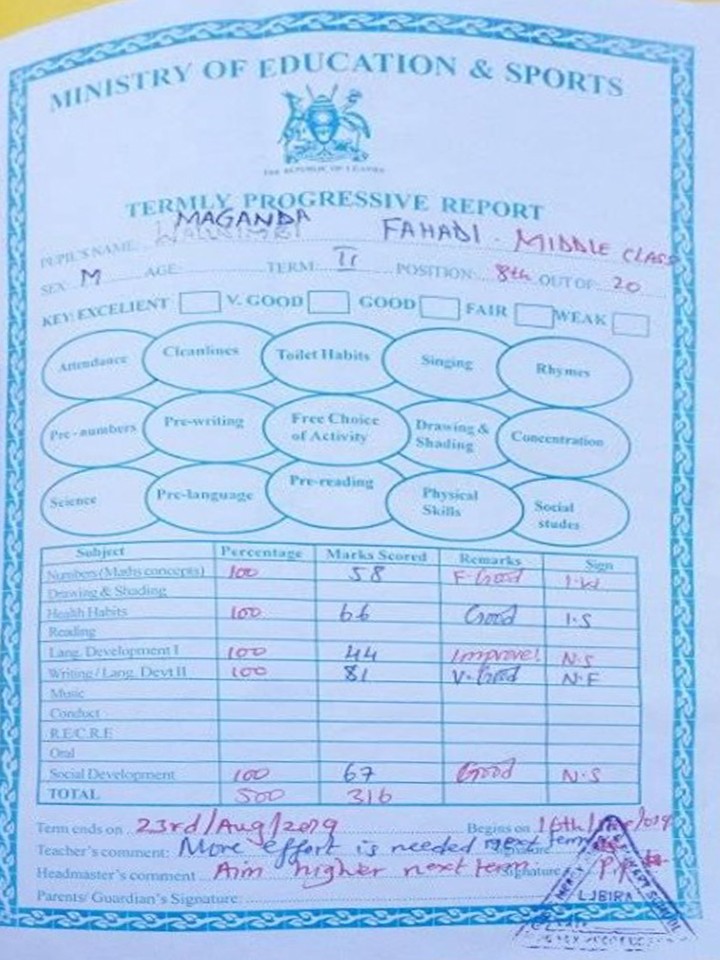 MINISTRY OF EDUCATION & SPORTS
THE REPUBLIC OF UGANDA
TERMLY PROGRESSIVE REPORT
MAGANDA
PUPIL'S NAME: FAHADI. MIDDLE CLASS
SEX: M AGE: TERM: II POSITION: 8th OUT OF: 20
KEY: EXCELIENT V. GOOD GOOD FAIR WEAK
Attendance Cleanlines Toilet Habits Singing Rhymes
Pre-numbers Pre-writing Free Choice of Activity Drawing & Shading Concentration
Science Pre-language Pre-reading Physical Skills Social studes
Subject Percentage Marks Scored Remarks Sign
Numbers (Maths concepts) 100 58 F. Good I.W
Drawing & Shading
Health Habits 100 66 Good I.S
Reading
Lang. Development I 100 44 Improve! N.S
Writing / Lang. Devt II 100 81 V. Good N.F
Music
Conduct
R.E/C.R.E
Oral
Social Development 100 67 Good N.S
TOTAL 500 316
Term ends on 23rd/Aug/2019 Begins on 16th/
Teacher's comment: More effort is needed next term
Headmaster's comment Aim higher next term. Signature
Parents/ Guardian's Signature:
LJBIRA